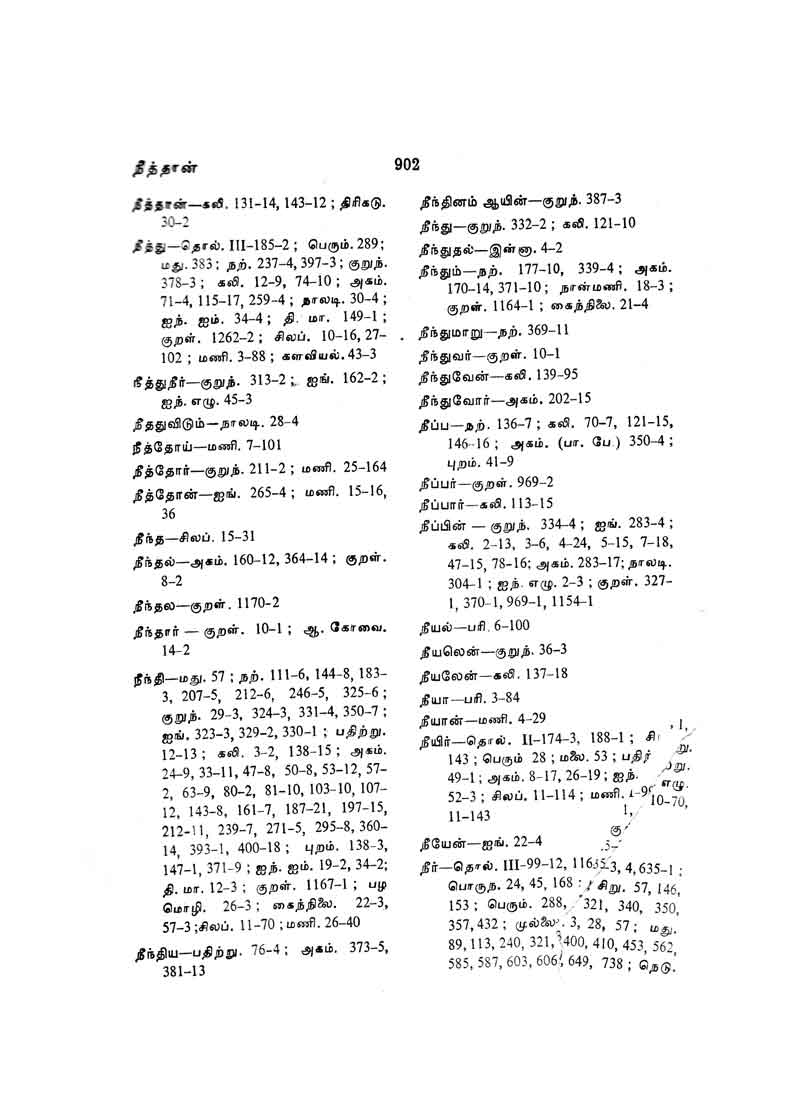 நீத்தான்
902
நீத்தான்—கலி. 131-14, 143-12 ; திரிகடு.
30-2
நீத்து—தொல். III-185-2 ; பெரும். 289;
மது. 383 ; நற். 237-4, 397-3 ; குறுந்.
378-3 ; கலி. 12-9, 74-10 ; அகம்.
71-4, 115-17, 259-4 ; நாலடி. 30-4 ;
ஐந். ஐம். 34-4 ; தி. மா. 149-1 ;
குறள். 1262-2 ; சிலப். 10-16, 27-
102 ; மணி. 3-88 ; களவியல். 43-3
நீத்துநீர்—குறுந். 313-2 ; ஐங். 162-2 ;
ஐந். எழு. 45-3
நீததுவிடும்—நாலடி. 28-4
நீத்தோய்—மணி. 7-101
நீத்தோர்—குறுந். 211-2 ; மணி. 25-164
நீத்தோன்—ஐங். 265-4 ; மணி. 15-16,
36
நீந்த—சிலப். 15-31
நீந்தல்—அகம். 160-12, 364-14 ; குறள்.
8-2
நீந்தல—குறள். 1170-2
நீந்தார் — குறள். 10-1 ; ஆ. கோவை.
14-2
நீந்தி—மது. 57 ; நற். 111-6, 144-8, 183-
3, 207-5, 212-6, 246-5, 325-6 ;
குறுந். 29-3, 324-3, 331-4, 350-7 ;
ஐங். 323-3, 329-2, 330-1 ; பதிற்று.
12-13 ; கலி. 3-2, 138-15 ; அகம்.
24-9, 33-11, 47-8, 50-8, 53-12, 57-
2, 63-9, 80-2, 81-10, 103-10, 107-
12, 143-8, 161-7, 187-21, 197-15,
212-11, 239-7, 271-5, 295-8, 360-
14, 393-1, 400-18 ; புறம். 138-3,
147-1, 371-9 ; ஐந். ஐம். 19-2, 34-2;
தி. மா. 12-3 ; குறள். 1167-1 ; பழ
மொழி. 26-3 ; கைந்நிலை. 22-3,
57-3 ;சிலப். 11-70 ; மணி. 26-40
நீந்திய—பதிற்று. 76-4 ; அகம். 373-5,
381-13
நீந்தினம் ஆயின்—குறுந். 387-3
நீந்து—குறுந். 332-2 ; கலி. 121-10
நீந்துதல்—இன்னா. 4-2
நீந்தும்—நற். 177-10, 339-4 ; அகம்.
170-14, 371-10 ; நான்மணி. 18-3 ;
குறள். 1164-1 ; கைந்நிலை. 21-4
நீந்துமாறு—நற். 369-11
நீந்துவர்—குறள். 10-1
நீந்துவேன்—கலி. 139-95
நீந்துவோர்—அகம். 202-15
நீப்ப—நற். 136-7 ; கலி. 70-7, 121-15,
146-16 ; அகம். (பா. பே.) 350-4 ;
புறம். 41-9
நீப்பர்—குறள். 969-2
நீப்பார்—கலி. 113-15
நீப்பின் — குறுந். 334-4 ; ஐங். 283-4 ;
கலி. 2-13, 3-6, 4-24, 5-15, 7-18,
47-15, 78-16; அகம். 283-17; நாலடி.
304-1 ; ஐந். எழு. 2-3 ; குறள். 327-
1, 370-1, 969-1, 1154-1
நீயல்—பரி. 6-100
நீயலென்—குறுந். 36-3
நீயலேன்—கலி. 137-18
நீயா—பரி. 3-84
நீயான்—மணி. 4-29
நீயிர்—தொல். II-174-3, 188-1 ;
143 ; பெரும் 28 ; மலை. 53 ;
49-1 ; அகம். 8-17, 26-19 ; ஐந். எழு.
52-3 ; சிலப். 11-114 ; மணி. 10-70,
11-143
நீயேன்—ஐங். 22-4
நீர்—தொல். III-99-12, 3, 4, 635-1 ;
பொருந. 24, 45, 168 ; சிறு. 57, 146,
153 ; பெரும். 288, 321, 340, 350,
357, 432 ; முல்லை. 3, 28, 57 ; மது.
89, 113, 240, 321, 400, 410, 453, 562,
585, 587, 603, 606, 649, 738 ; நெடு.